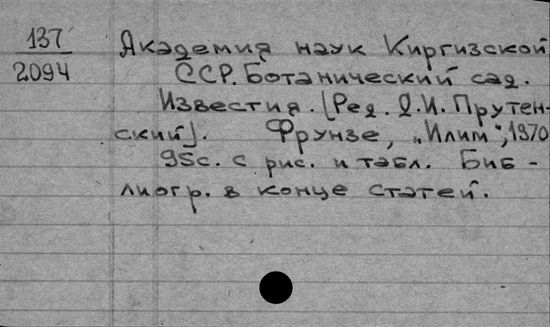 137
2094
Академия наук Киргизской
ССР. Ботанический сад.
Известия. [Ред. Д.И. Прутен-
ский]. Фрунзе, „Илим", 1970
95с. с рис. и табл. Биб-
лиогр. в конце статей.